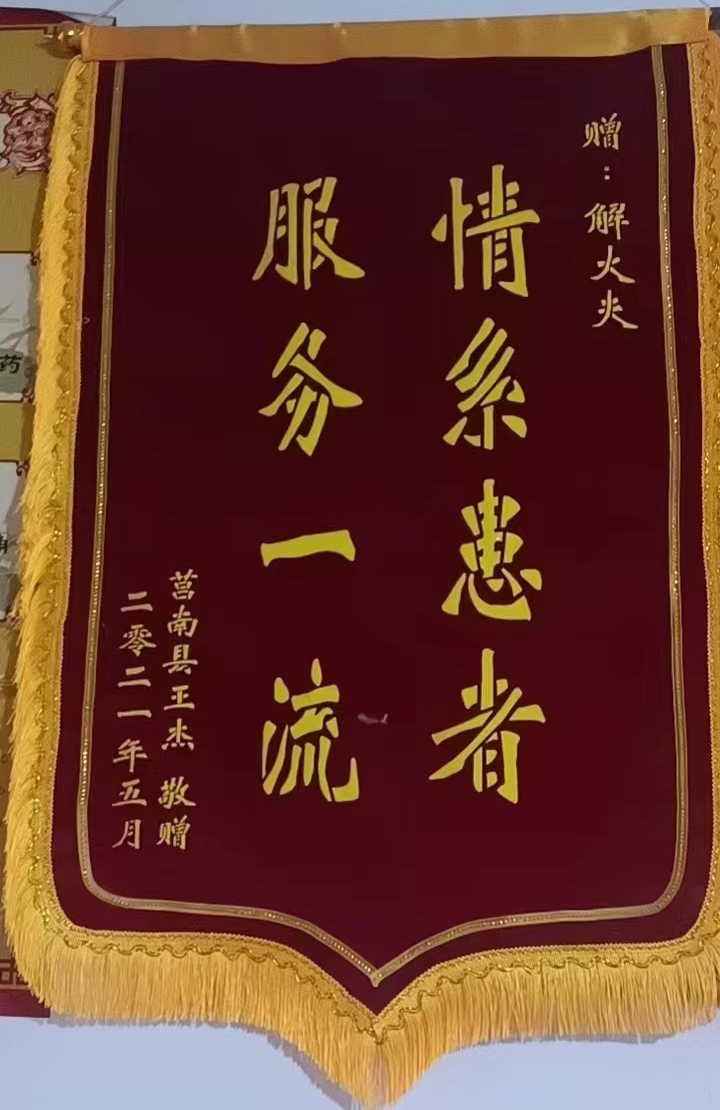 赠：解火炎
情系患者
服务一流
莒南县王杰 敬赠
二零二一年五月
药